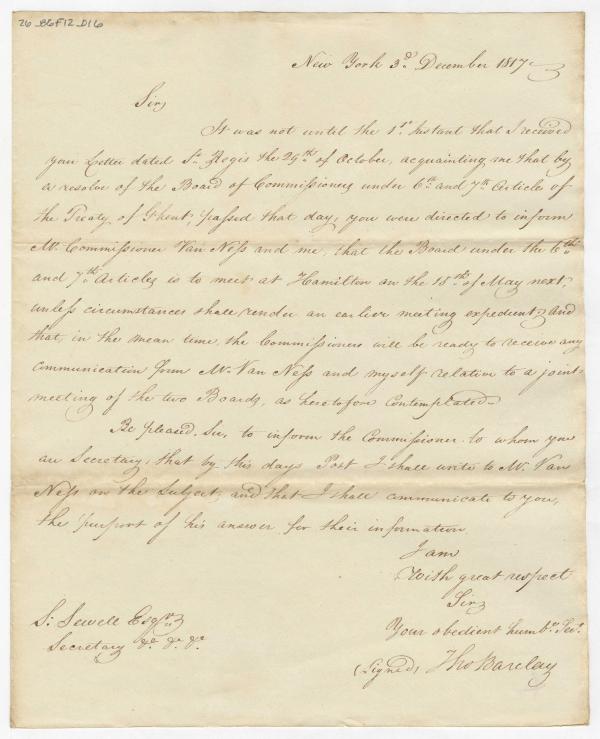 26_B6F12_D16
New York 3d. December 1817
Sir,
It was not until the 1st. Instant that I received
your Letter dated St. Regis the 29th. of October, acquainting me that by
a resolve of the Board of Commissioners under 6th. and 7th. Articles of
the Treaty of Ghent, passed that day, you were directed to inform
Mr. Commissioner Van Ness and me, that the Board under the 6th.
and 7th. Articles is to meet at Hamilton on the 18th. of May next,
unless circumstances shall render an earlier meeting expedient, and
that, in the mean time, the Commissioners will be ready to receive any
communication from Mr. Van Ness and myself relative to a joint
meeting of the two Boards, as heretofore contemplated.
Be pleased, Sir, to inform the Commissioner to whom you
are Secretary, that by this days Post I shall write to Mr. Van
Ness on the Subject, and that I shall communicate to you,
the purport of his answer for their information.
I am
With great respect
Sir,
Your obedient humb. Sert.
(Signed) Tho Barclay
S: Sewell Esqr.
Secretary &c. &c. &c.